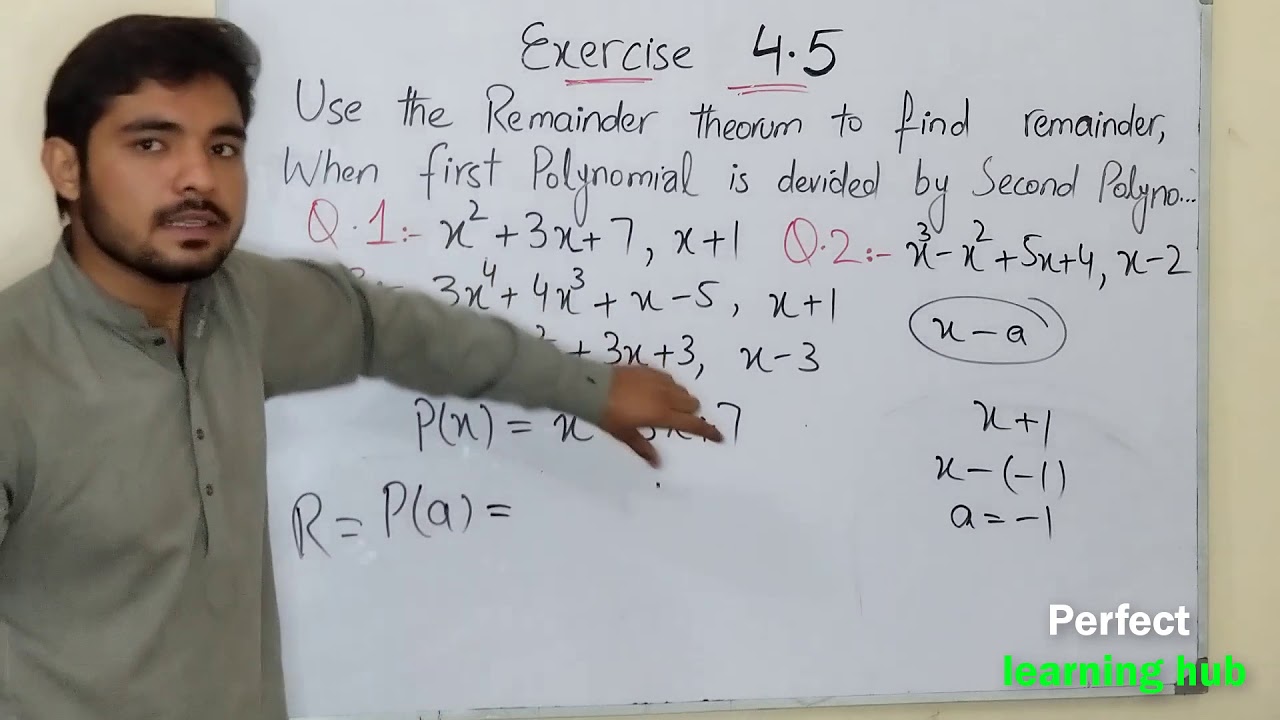 Exercise 4.5
Use the Remainder theorum to find remainder,
When first Polynomial is devided by Second Polyno...
Q.1:- x² + 3x + 7, x+1 Q.2:- x³ - x² + 5x + 4, x - 2
3x⁴ + 4x³ + x - 5, x + 1
+ 3x + 3, x - 3
x - a
P(x) = x 7
x + 1
x - (-1)
R = P(a) =
a = -1
Perfect
learning hub